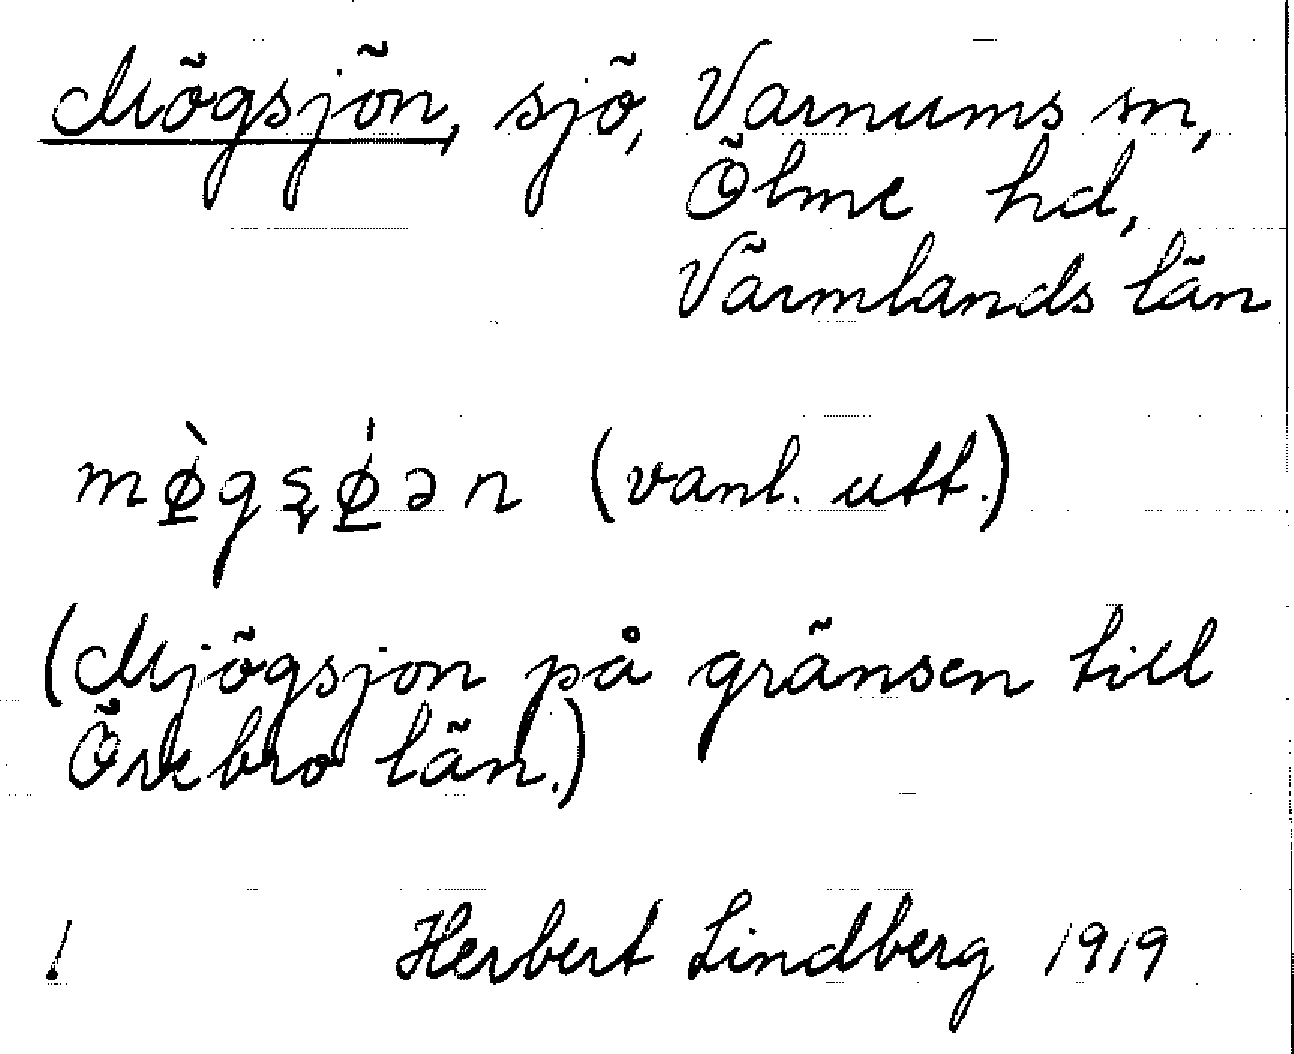 Mögsjön, sjö, Varnums sn,
Ölme hd,
Värmlands län
mø̱̀gʂǿ̱ən (vanl. utt.)
(Mjögsjon på gränsen till
Örebro län.)
! Herbert Lindberg 1919